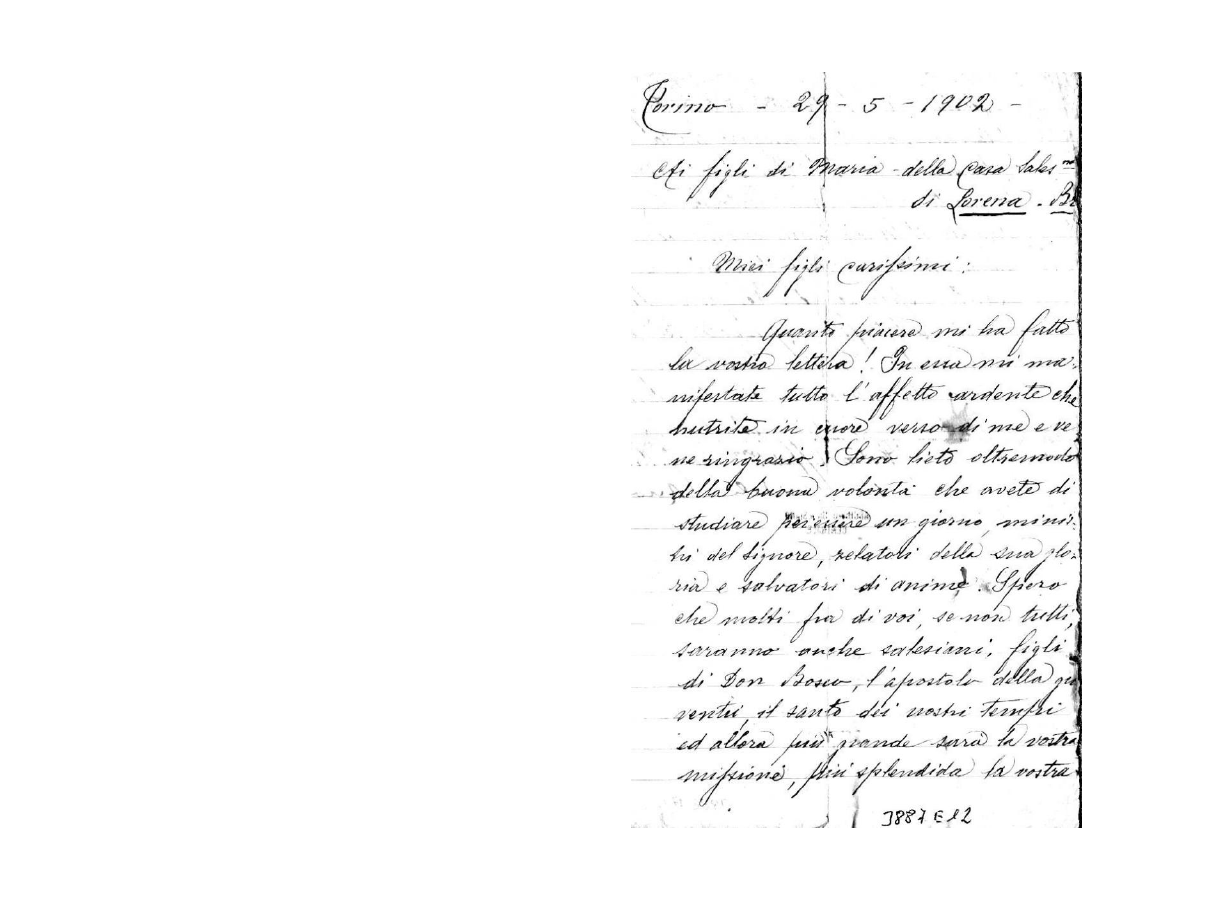 Torino - 29 - 5 - 1902 -
Ai figli di Maria della Casa Sales.na
di Lorena - Br
Miei figli carissimi:
Quanto piacere mi ha fatto
la vostra lettera! In essa mi ma-
nifestate tutto l'affetto ardente che
nutrite in cuore verso di me e ve
ne ringrazio. Sono lieto oltremodo
della buona volontà che avete di
studiare per essere un giorno, minis-
tri del Signore, zelatori della sua glo-
ria e salvatori di anime. Spero
che molti fra di voi, se non tutti,
saranno anche salesiani, figli
di Don Bosco, l'apostolo della gio
ventù, il santo dei nostri tempi
ed allora più grande sarà la vostra
missione, più splendida la vostra
3887 E12